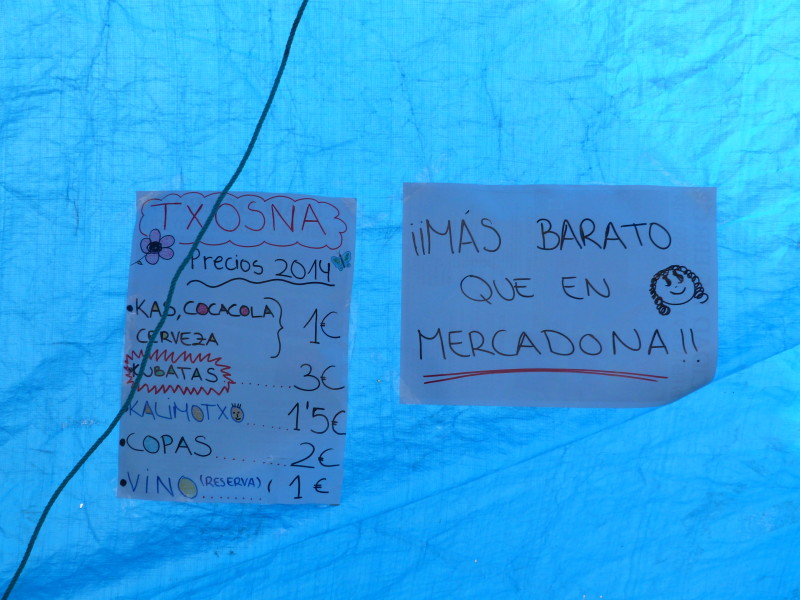 TXOSNA
Precios 2014
• KAS, COCACOLA
CERVEZA } 1€
• KUBATAS ...... 3€
• KALIMOTXO ...... 1'5€
• COPAS .......... 2€
• VINO (RESERVA) ........ 1€
¡¡MÁS BARATO
QUE EN
MERCADONA!!